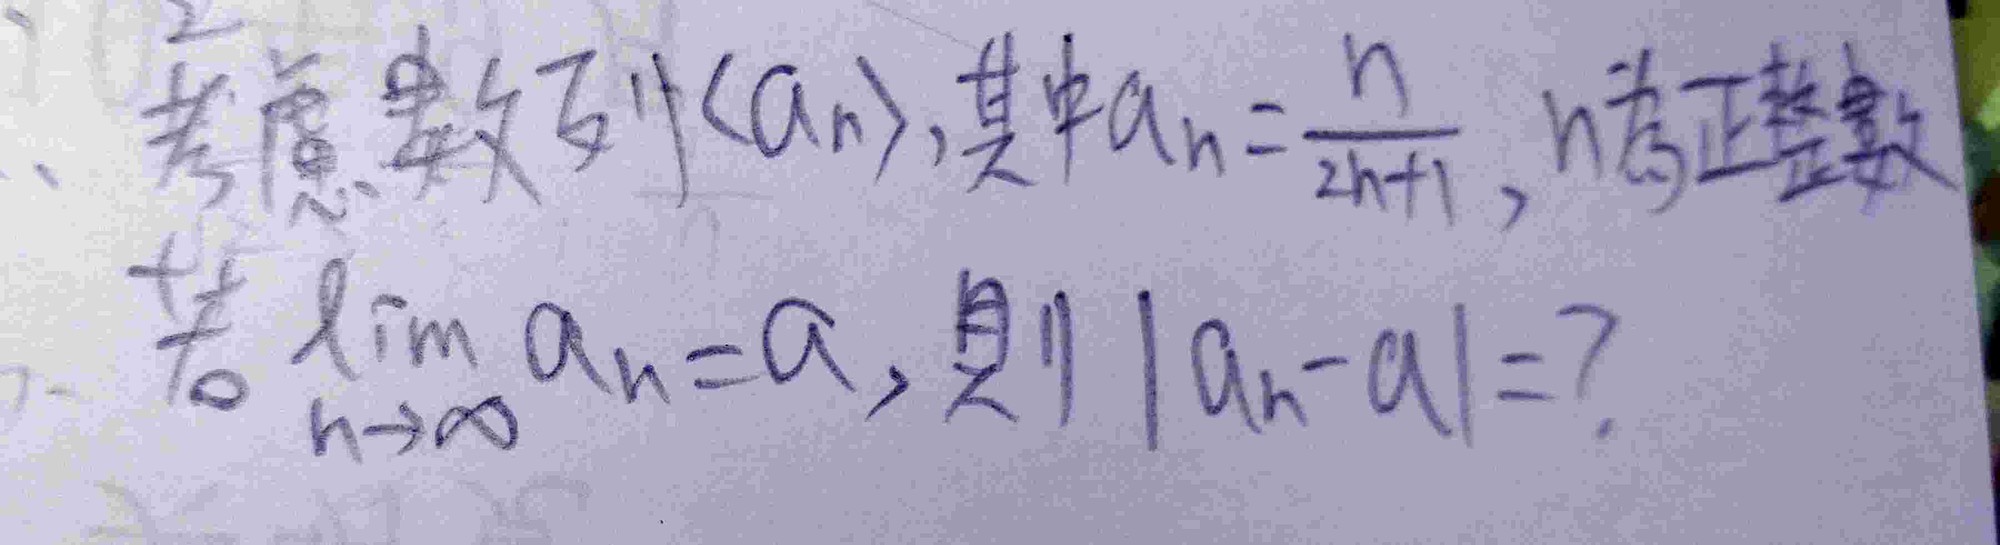 考慮數列<aₙ>,其中aₙ=n/(2n+1),n為正整數
若 lim_{n→∞} aₙ=a,則|aₙ-a|=?